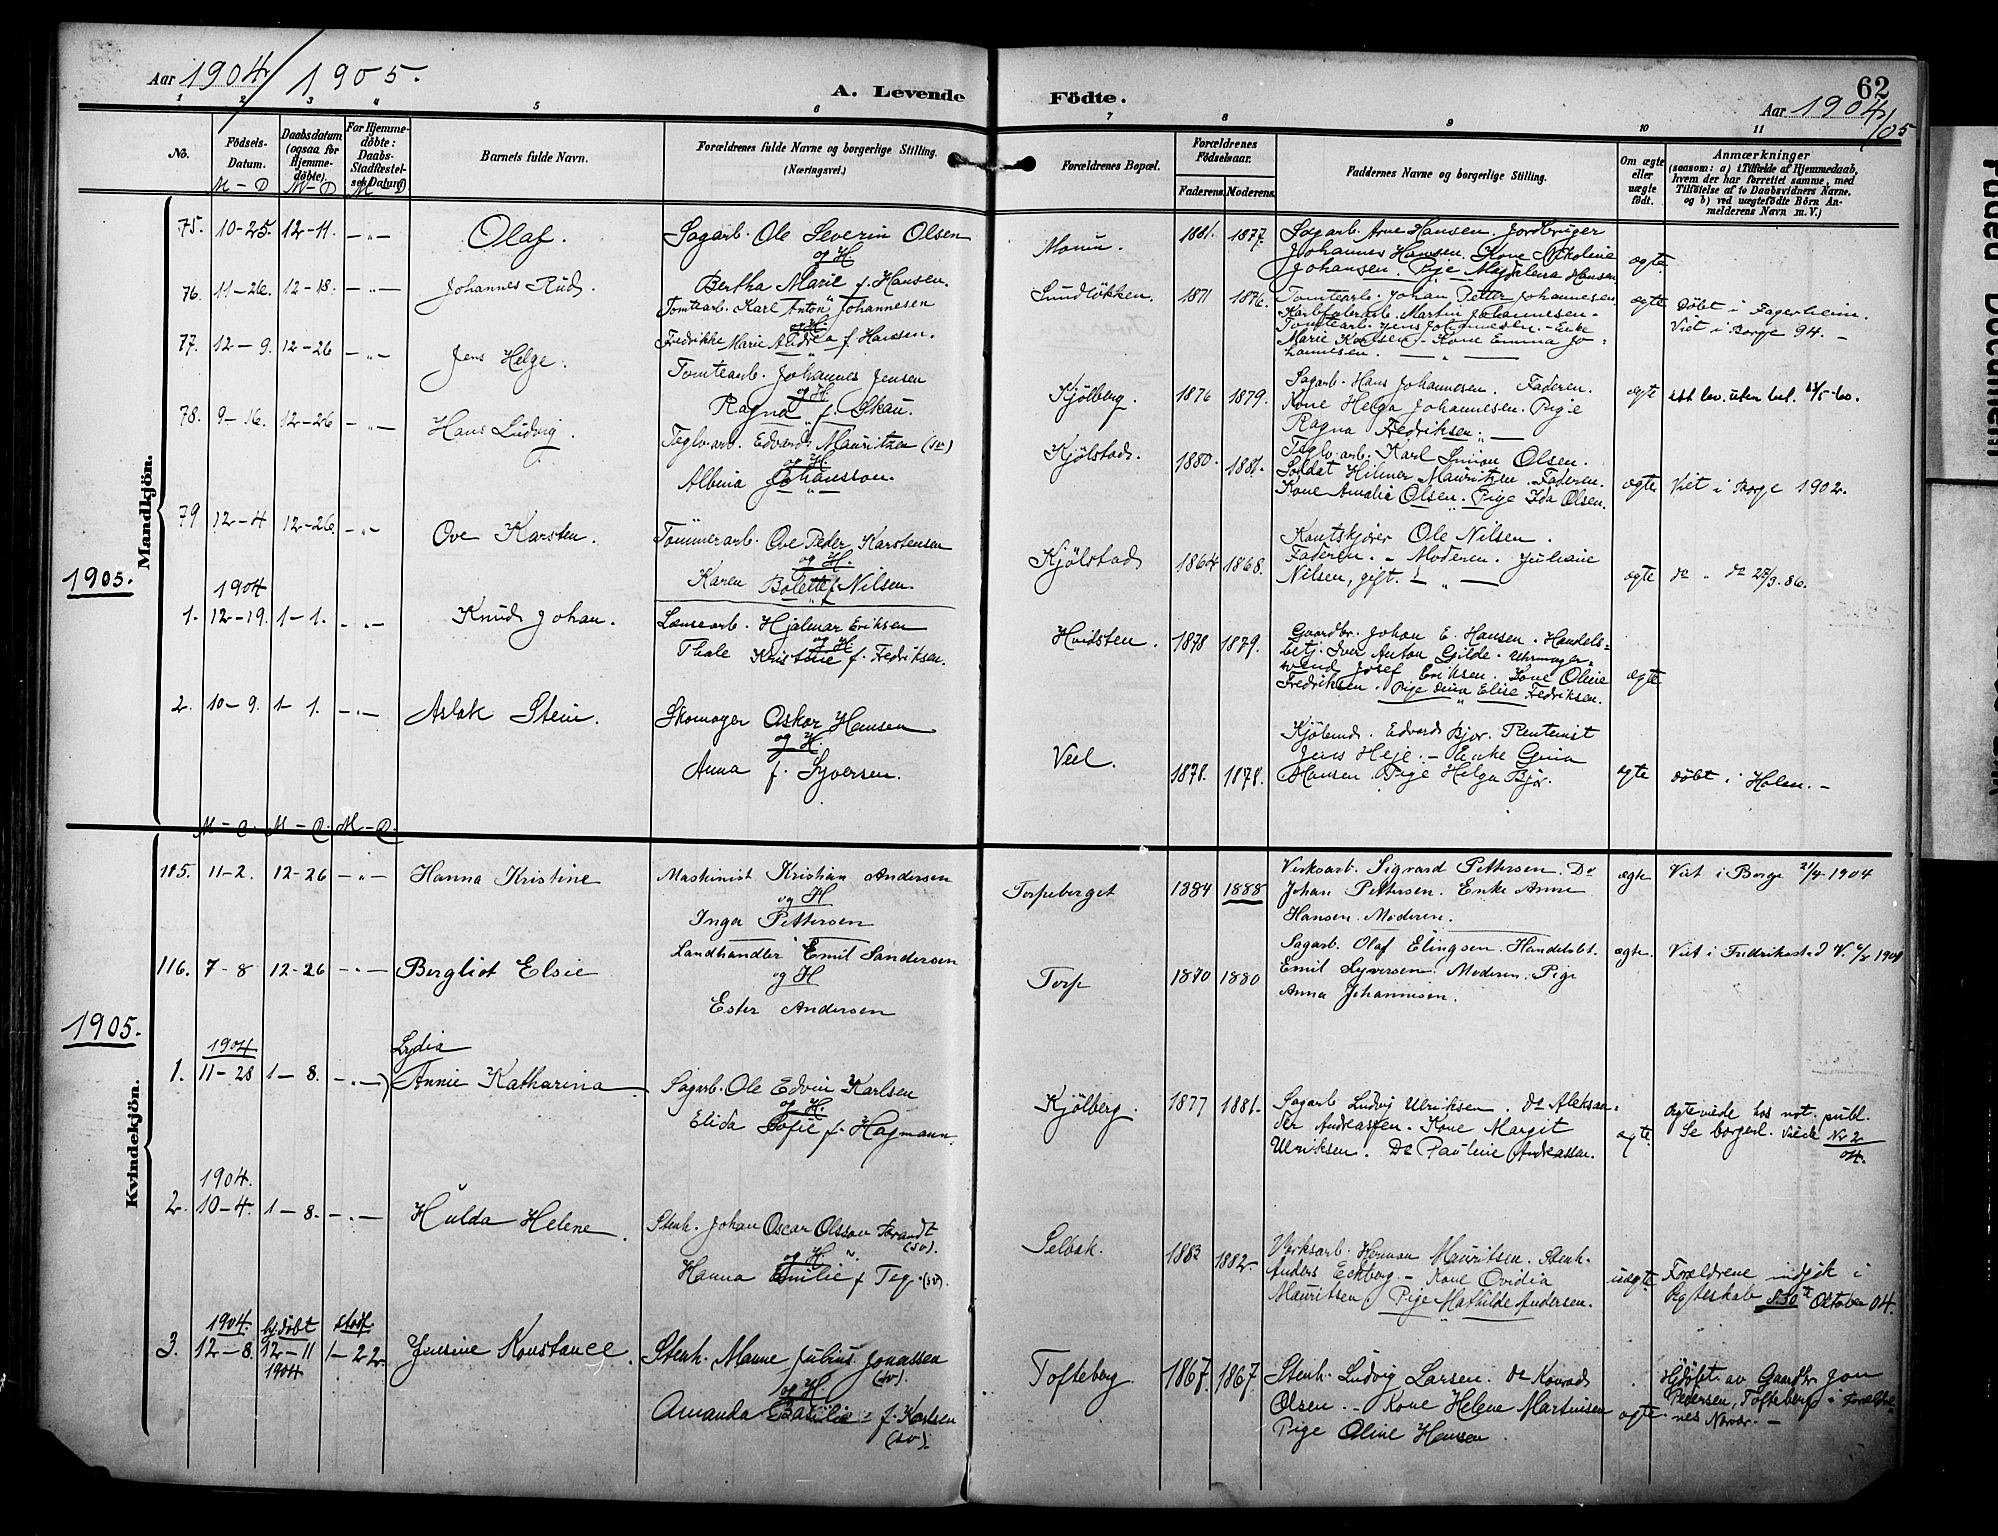 Aar 1904/1905.
A. Levende Födte.
62
Aar 1904/05
1 2 3 4 5 6 7 8 9 10 11
No.
Födsels-Datum.
M - D
Daabsdatum (ogsaa for Hjemmedöbte).
M - D
For Hjemmedöbte: Daabs-Stadfæstelses Datum
Barnets fulde Navn.
Forældrenes fulde Navne og borgerlige Stilling.
(Næringsvei.)
Forældrenes Bopæl.
Forældrenes Födselsaar.
Faderens. Moderens.
Faddernes Navne og borgerlige Stilling.
Om ægte eller uægte födt.
Anmærkninger
(saasom: a) i Tilfælde af Hjemmedaab, hvem der har forrettet samme, med Tilföielse af to Daabsvidners Navne, og b) ved uægtefödte Börn Anmelderens Navn m. V.)
Mandkjön.
75. 10-25. 12-11. -„- Olaf. Sagarb. Ole Severin Olsen
og H.
Bertha Marie f. Hansen.
Moum. 1881. 1877. Sagarb. Arne Hansen. Jordbruger
Johannes Hansen. Kone
Johansen. Pige Magdalena Hansen
ægte.
76. 11-26. 12-18. -„- Johannes Rud. Tomtearb. Karl Anton Johannesen
og H.
Fredrikke Marie Andrea f. Hansen.
Sundlökken. 1871 1876. Tomtearb. Johan Petter Johannesen.
Martin Johannesen.
Tomtearb. Jens Johannesen. - Enke
Marie Karlsen. - Kone Emma Jo-
hannesen.
ægte. Döbt i Fagerheim.
Viet i Borge 94. -
77. 12-9. 12-26 -„- Jens Helge. Tomtearb. Johannes Jensen
og H.
Ragna f. Skau.
Kjölberg. 1876 1879. Sagarb. Hans Johannesen. Faderen.
Kone Helga Johannesen. Pige
Ragna Fredriksen.
ægte
78. 9-16. 12-26 -„- Hans Ludvig. Teglv.arb. Edvard Mauritzen (sv)
og H.
Albina Johansson.
Kjölstad. 1880. 1881. Teglv.arb. Karl Simon Olsen.
Soldat Hilmer Mauritzen. Faderen.
Kone Amalie Olsen. Pige Ida Olsen.
ægte Viet i Borge 1902.
79 12-4 12-26. -„- Ove Karsten. Tömmerarb. Ove Peder Karstensen
og H.
Karen Bolette f. Nilsen.
Kjölstad 1864 1868. Ole Nilsen.
Faderen. - Moderen. Juliane
Nilsen, gift.
ægte do „ do 27/3. 86.
1905.
1904
1. 12-19. 1-1. -„- Knud Johan. Lænsearb. Hjalmar Eriksen
og H
Thale Kristine f. Fredriksen.
Hvidsten. 1878 1879. Gaardbr. Johan E. Hansen. Handels-
betj. Iver Anton Gilde. Uhrmager-
svend Josef Eriksen. Kone Oline
Fredriksen. Pige Dina Elise Fredriksen.
ægte
2. 10-9. 1-1. -„- Aslak Stein. Skomager Oskar Hansen
og H.
Anna f. Syversen.
Veel. 1878. 1878. Kjöbmd. Edvard Bjor. Rentenist
Jens Heje. - Enke Gina
Hansen. Pige Helga Bjor.
ægte Döbt i Holen. -
M - D. M - D M - D.
Kvindekjön.
115. 11-2. 12-26 -„- Hanna Kristine Maskinist Kristian Andersen
og H
Inga Pettersen
Torpeberget 1884 1888 Verksarb. Sigvard Pettersen. Do
Johan Pettersen. Enke Anne
Hansen. Moderen.
ægte Viet i Borge 21/4 1904
116. 7-8 12-26 -„- Bergliot Elsie Landhandler Emil Sandersen
og H
Ester Andersen
Torp 1870 1880 Sagarb. Olaf Elingsen. Handelsbt.
Emil Syversen. Moderen. Pige
Anna Johannisen.
ægte. Viet i Fredriksstad V. 1904
1905.
1904
1. 11-28 1-8. -„-) Lydia
Annie Katharina Sagarb. Ole Edvin Karlsen
og H.
Elida Sofie f. Hagmann.
Kjölberg. 1877 1881. Sagarb Ludvig Ulriksen. Do Aleksan-
der Andreassen. Kone Margit
Ulriksen. Do Pauline Andreassen.
ægte. Ægteviede hos not. publ.
Se borgerl. viede Nr 2
04.
1904.
2. 10-4. 1-8. -„- Hulda Helene. Stenh. Johan Oscar Olsson Brandt
(sv).
og H.
Hanna Emilie f. Teg. (sv).
Selbak. 1883 1882. Verksarb. Herman Mauritsen. Stenh.
Anders Eckberg. - Kone Ovidia
Mauritsen Pige Mathilde Andersen.
uægte Forældrene indgik i
Ægteskab d. 30te Oktober 04.
1904. hj.döbt stadf
3. 12-8. 12-11 1-22.
1904
Jensine Konstance. Stenh. Manne Julius Jonassen
(sv).
og H.
Amanda Basilie f. Karlsen
(sv).
Tofteberg. 1867. 1867. Stenh. Ludvig Larsen. Do Konrad
Olsen. - Kone Helene Martinsen
Pige Oline Hansen.
ægte Hjdöbt av Gaardbr. Jon
Pedersen, Tofteberg i Forældre-
nes Nærvær. -
Faded Document